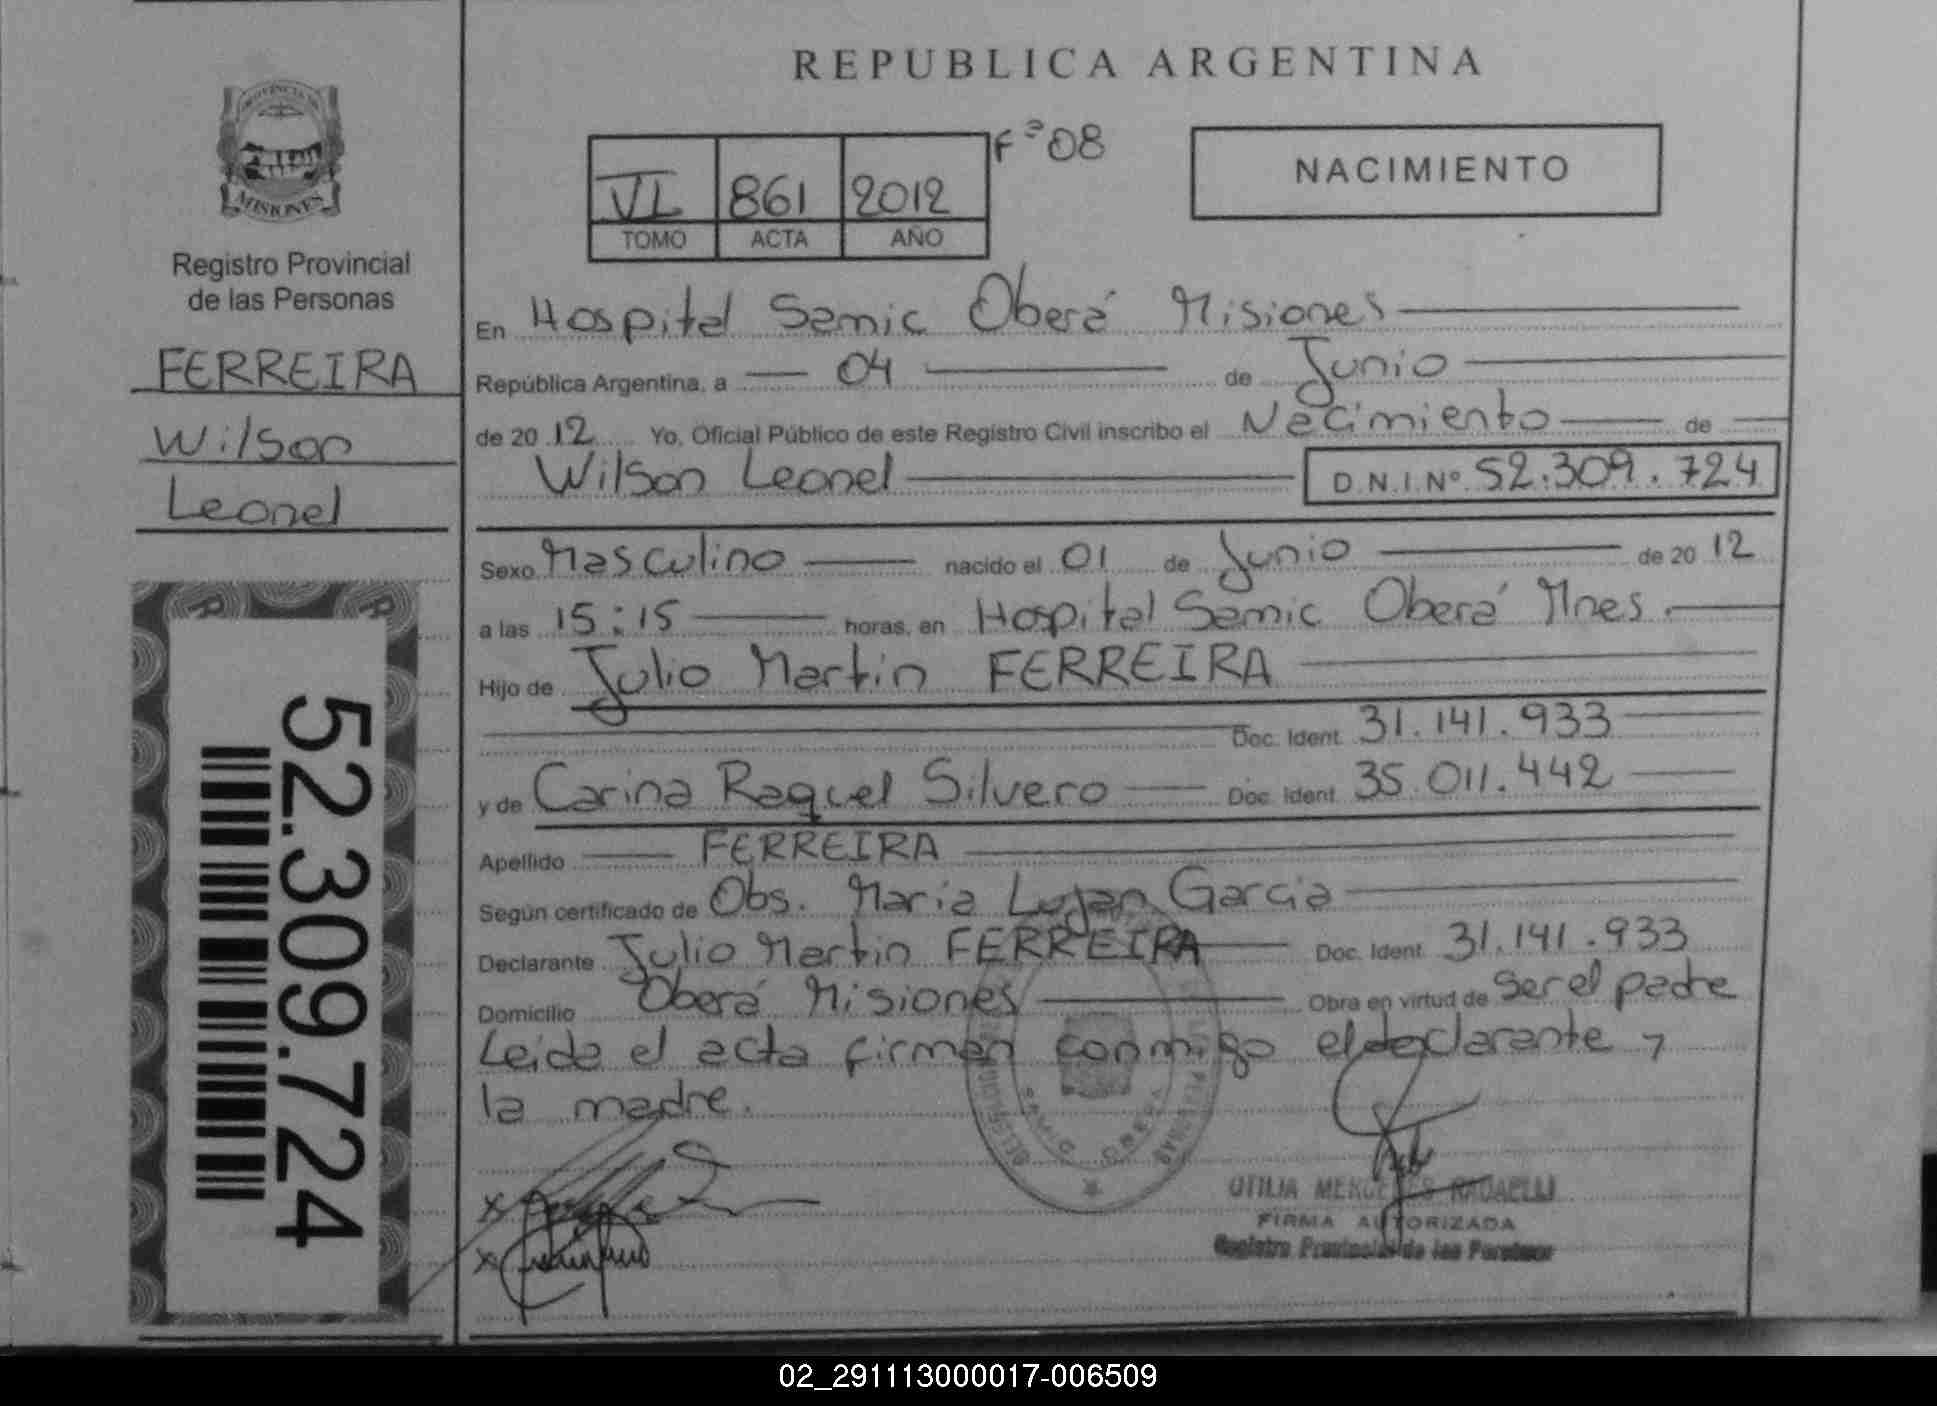 PROVINCIA DE
MISIONES
Registro Provincial
de las Personas
FERREIRA
Wilson
Leonel
52.309.724
REPUBLICA ARGENTINA
VI 861 2012 Fº08
TOMO ACTA AÑO
NACIMIENTO
En Hospital Samic Oberá Misiones
República Argentina, a 04 de Junio
de 2012 Yo, Oficial Público de este Registro Civil inscribo el Nacimiento de
Wilson Leonel D.N.I.Nº 52.309.724
Sexo Masculino nacido el 01 de Junio de 2012
a las 15:15 horas, en Hospital Samic Oberá Mnes.
Hijo de Julio Martin FERREIRA
Doc. Ident. 31.141.933
y de Carina Raquel Silvero Doc. Ident. 35.011.442
Apellido FERREIRA
Según certificado de Obs. Maria Lujan Garcia
Declarante Julio Martin FERREIRA Doc. Ident. 31.141.933
Domicilio Oberá Misiones Obra en virtud de ser el padre
Leida el acta firman conmigo el declarante y
la madre.
SAMIC OBERA
OTILIA MERCEDES RADAELLI
FIRMA AUTORIZADA
Registro Provincial de las Personas
02_291113000017-006509